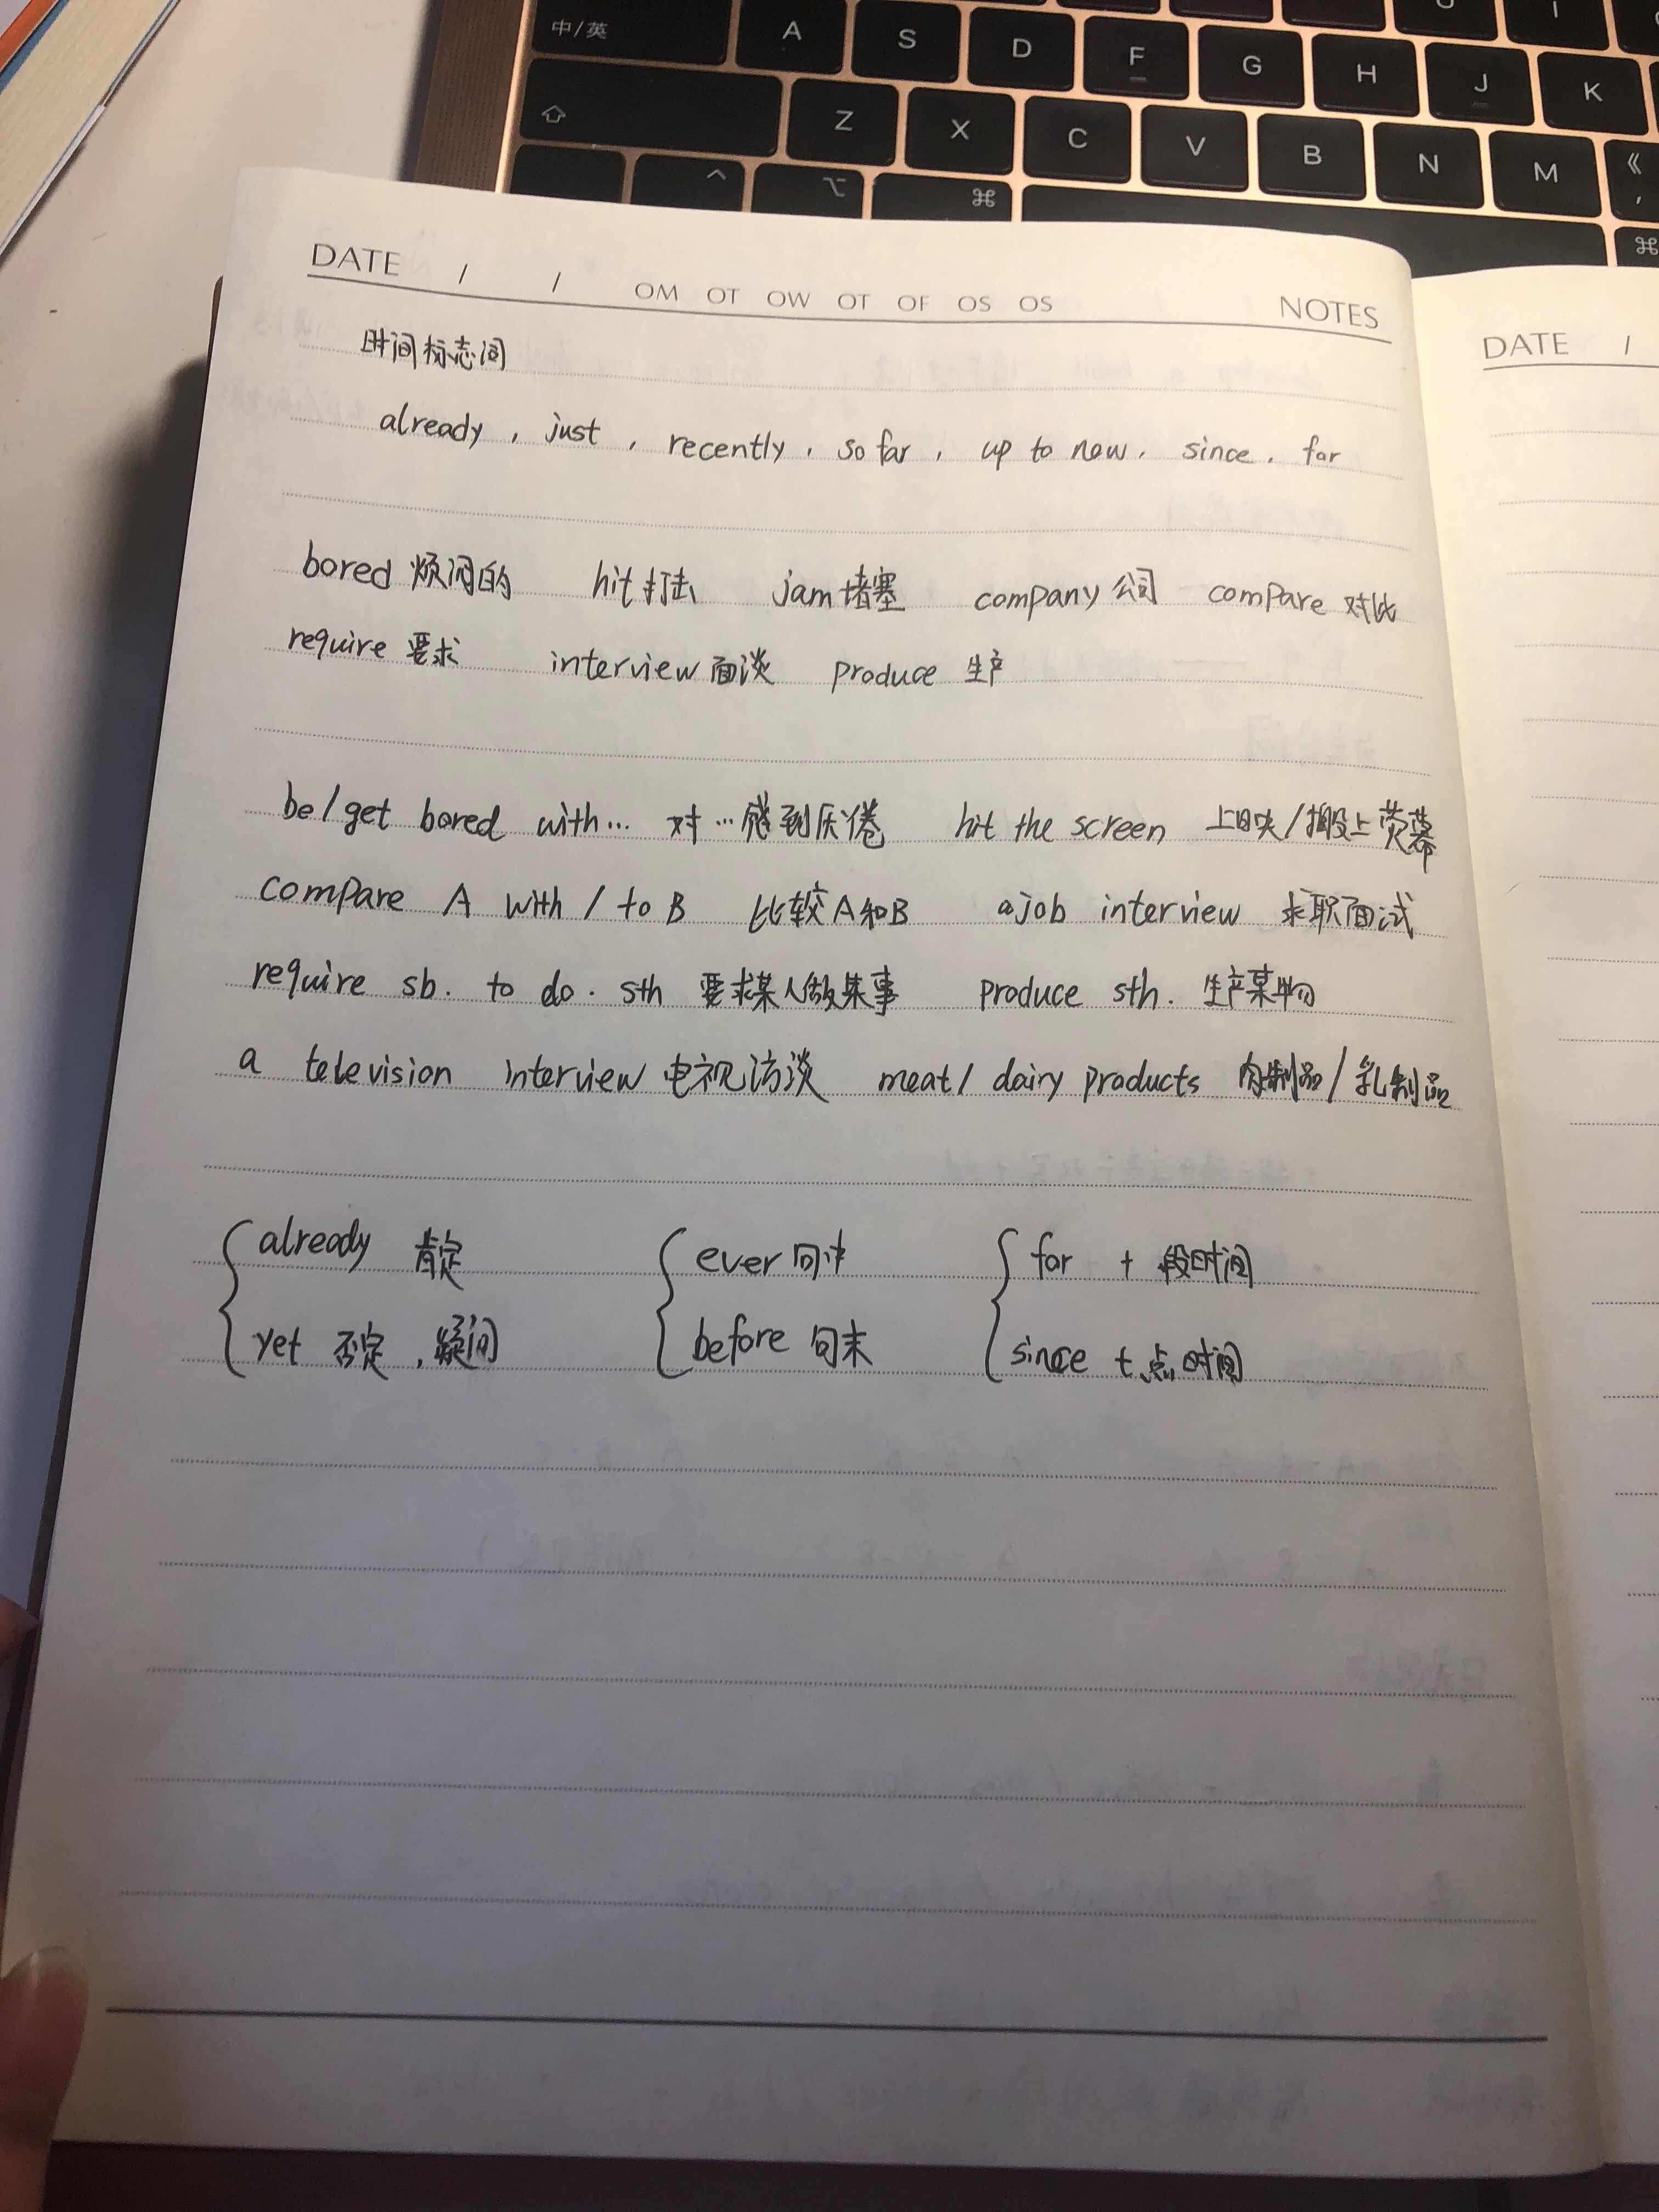 中/英 A S D F G H J K
Z X C V B N M 《 ,
⌘ ⌘
DATE / / OM OT OW OT OF OS OS NOTES
DATE /
时间标志词
already , just , recently , so far , up to now , since , for
bored 烦闷的 hit 打击 jam 堵塞 company 公司 compare 对比
require 要求 interview 面谈 produce 生产
be/get bored with… 对…感到厌倦 hit the screen 上映/搬上荧幕
compare A with / to B 比较A和B a job interview 求职面试
require sb. to do. sth 要求某人做某事 produce sth. 生产某物
a television interview 电视访谈 meat/ dairy products 肉制品/乳制品
already 肯定 ever 句中 for + 段时间
yet 否定,疑问 before 句末 since + 点时间